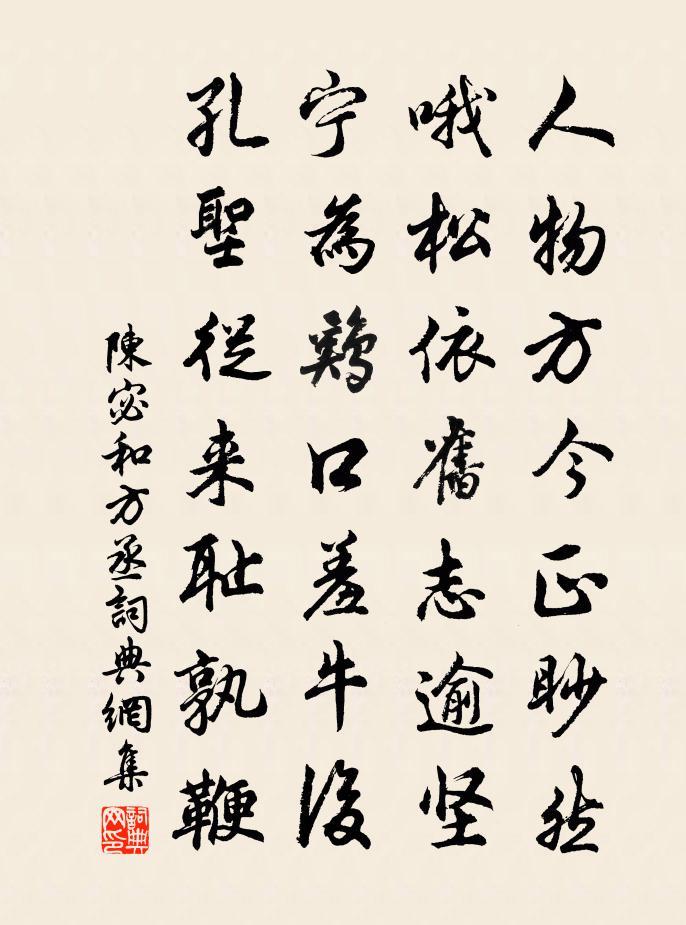 人物方今正眇然
哦松依舊志逾坚
宁為鷄口羞牛後
孔聖從来耻孰鞭
陳宓和方丞詞典網集
詞典网印